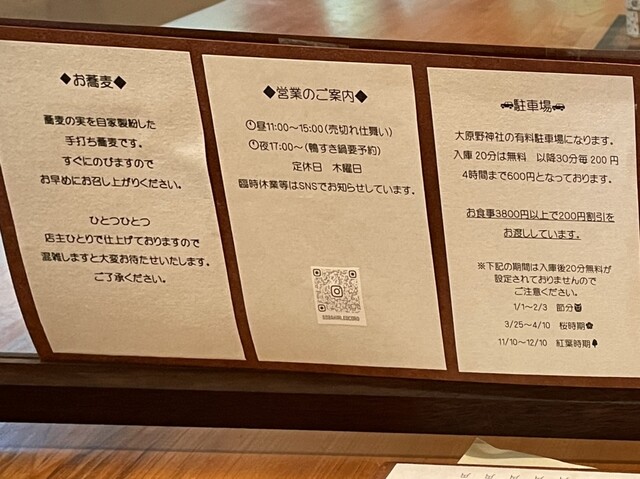 ◆お蕎麦◆
蕎麦の実を自家製粉した
手打ち蕎麦です。
すぐにのびますので
お早めにお召し上がりください。
ひとつひとつ
店主ひとりで仕上げておりますので
混雑しますと大変お待たせいたします。
ご了承ください。
◆営業のご案内◆
昼11:00～15:00(売切れ仕舞い)
夜17:00～(鴨すき鍋要予約)
定休日 木曜日
臨時休業等はSNSでお知らせしています。
駐車場
大原野神社の有料駐車場になります。
入庫20分は無料 以降30分毎200円
4時間まで600円となっております。
お食事3800円以上で200円割引を
お渡ししています。
※下記の期間は入庫後20分無料が
設定されておりませんので
ご注意ください。
1/1～2/3 節分
3/25～4/10 桜時期
11/10～12/10 紅葉時期